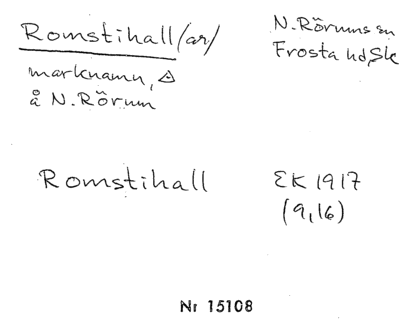 Romstihall/ar/
marknamn, △
å N. Rörum
N. Rörums sn
Frosta hd, Sk
Romstihall
EK 1917
(9,16)
Nr 15108